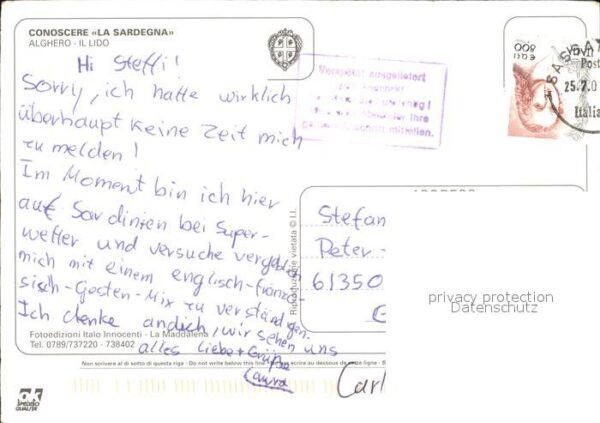 CONOSCERE «LA SARDEGNA»
ALGHERO - IL LIDO
Hi Steffi!
Sorry, ich hatte wirklich
überhaupt keine Zeit mich
zu melden!
Im Moment bin ich hier
auf Sardinien bei Super-
wetter und versuche vergeblich
mich mit einem englisch-franzö-
sisch-Gesten-Mix zu verständigen.
Ich denke an dich, wir sehen uns
alles Liebe + Grüße
Laura
Fotoedizioni Italo Innocenti - La Maddalena
Tel. 0789/737220 - 738402
Non scrivere al di sotto di questa riga - Do not write below this line - Ne pas écrire au dessous de cette ligne - B
Verspätet ausgeliefert
Ihre
mitteilen.
800
25.7.0
Italia
Riproduzione vietata © I.I.
Stefan
Peter-
61350
privacy protection
Datenschutz
Carl